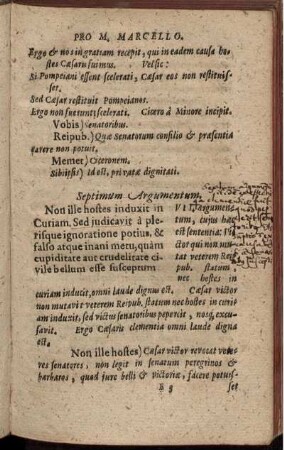 PRO M. MARCELLO.
Ergo & nos in gratiam recepit, qui in eadem causa ho-
stes Cæsaris fuimus. Vel sic:
Si Pompeiani essent scelerati, Cæsar eos non restituis-
set.
Sed Cæsar restituit Pompeianos.
Ergo non fuerunt scelerati. Cicero à Minore incipit.
Vobis) Senatoribus.
Reipub.) Quæ Senatorum consilio & præsentia
carere non potuit.
Memet) Ciceronem.
Sibiipsi) Id est, privatæ dignitati.
Septimum Argumentum.
Non ille hostes induxit in
Curiam. Sed judicavit à ple-
risque ignoratione potius, &
falso atque inani metu, quàm
cupiditate aut crudelitate ci-
vile bellum esse susceptum
VII. argumen-
tum, cujus hæc
est sententia: Vic-
tor qui non mu-
tat veterem Rei-
pub. statum,
nec hostes in
curiam inducit, omni laude dignus est. Cæsar victor
non mutavit veterem Reipub. statum nec hostes in curi-
am induxit, sed victus senatoribus pepercit, nosq, excu-
savit. Ergo Cæsaris clementia omni laude digna
est.
Non ille hostes) Cæsar victor revocat vete-
res senatores, non legit in senatum peregrinos &
barbaros, quod jure belli & victoriæ, facere potuis-
set